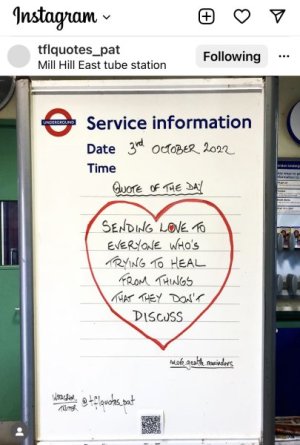 Instagram
tflquotes_pat
Mill Hill East tube station
Following
UNDERGROUND
Service information
Date 3rd OCTOBER 2022
Time
QUOTE OF THE DAY
SENDING LOVE TO
EVERYONE WHO'S
TRYING TO HEAL
FROM THINGS
THAT THEY DON'T
DISCUSS
more gentle reminders
@tflquotes_pat